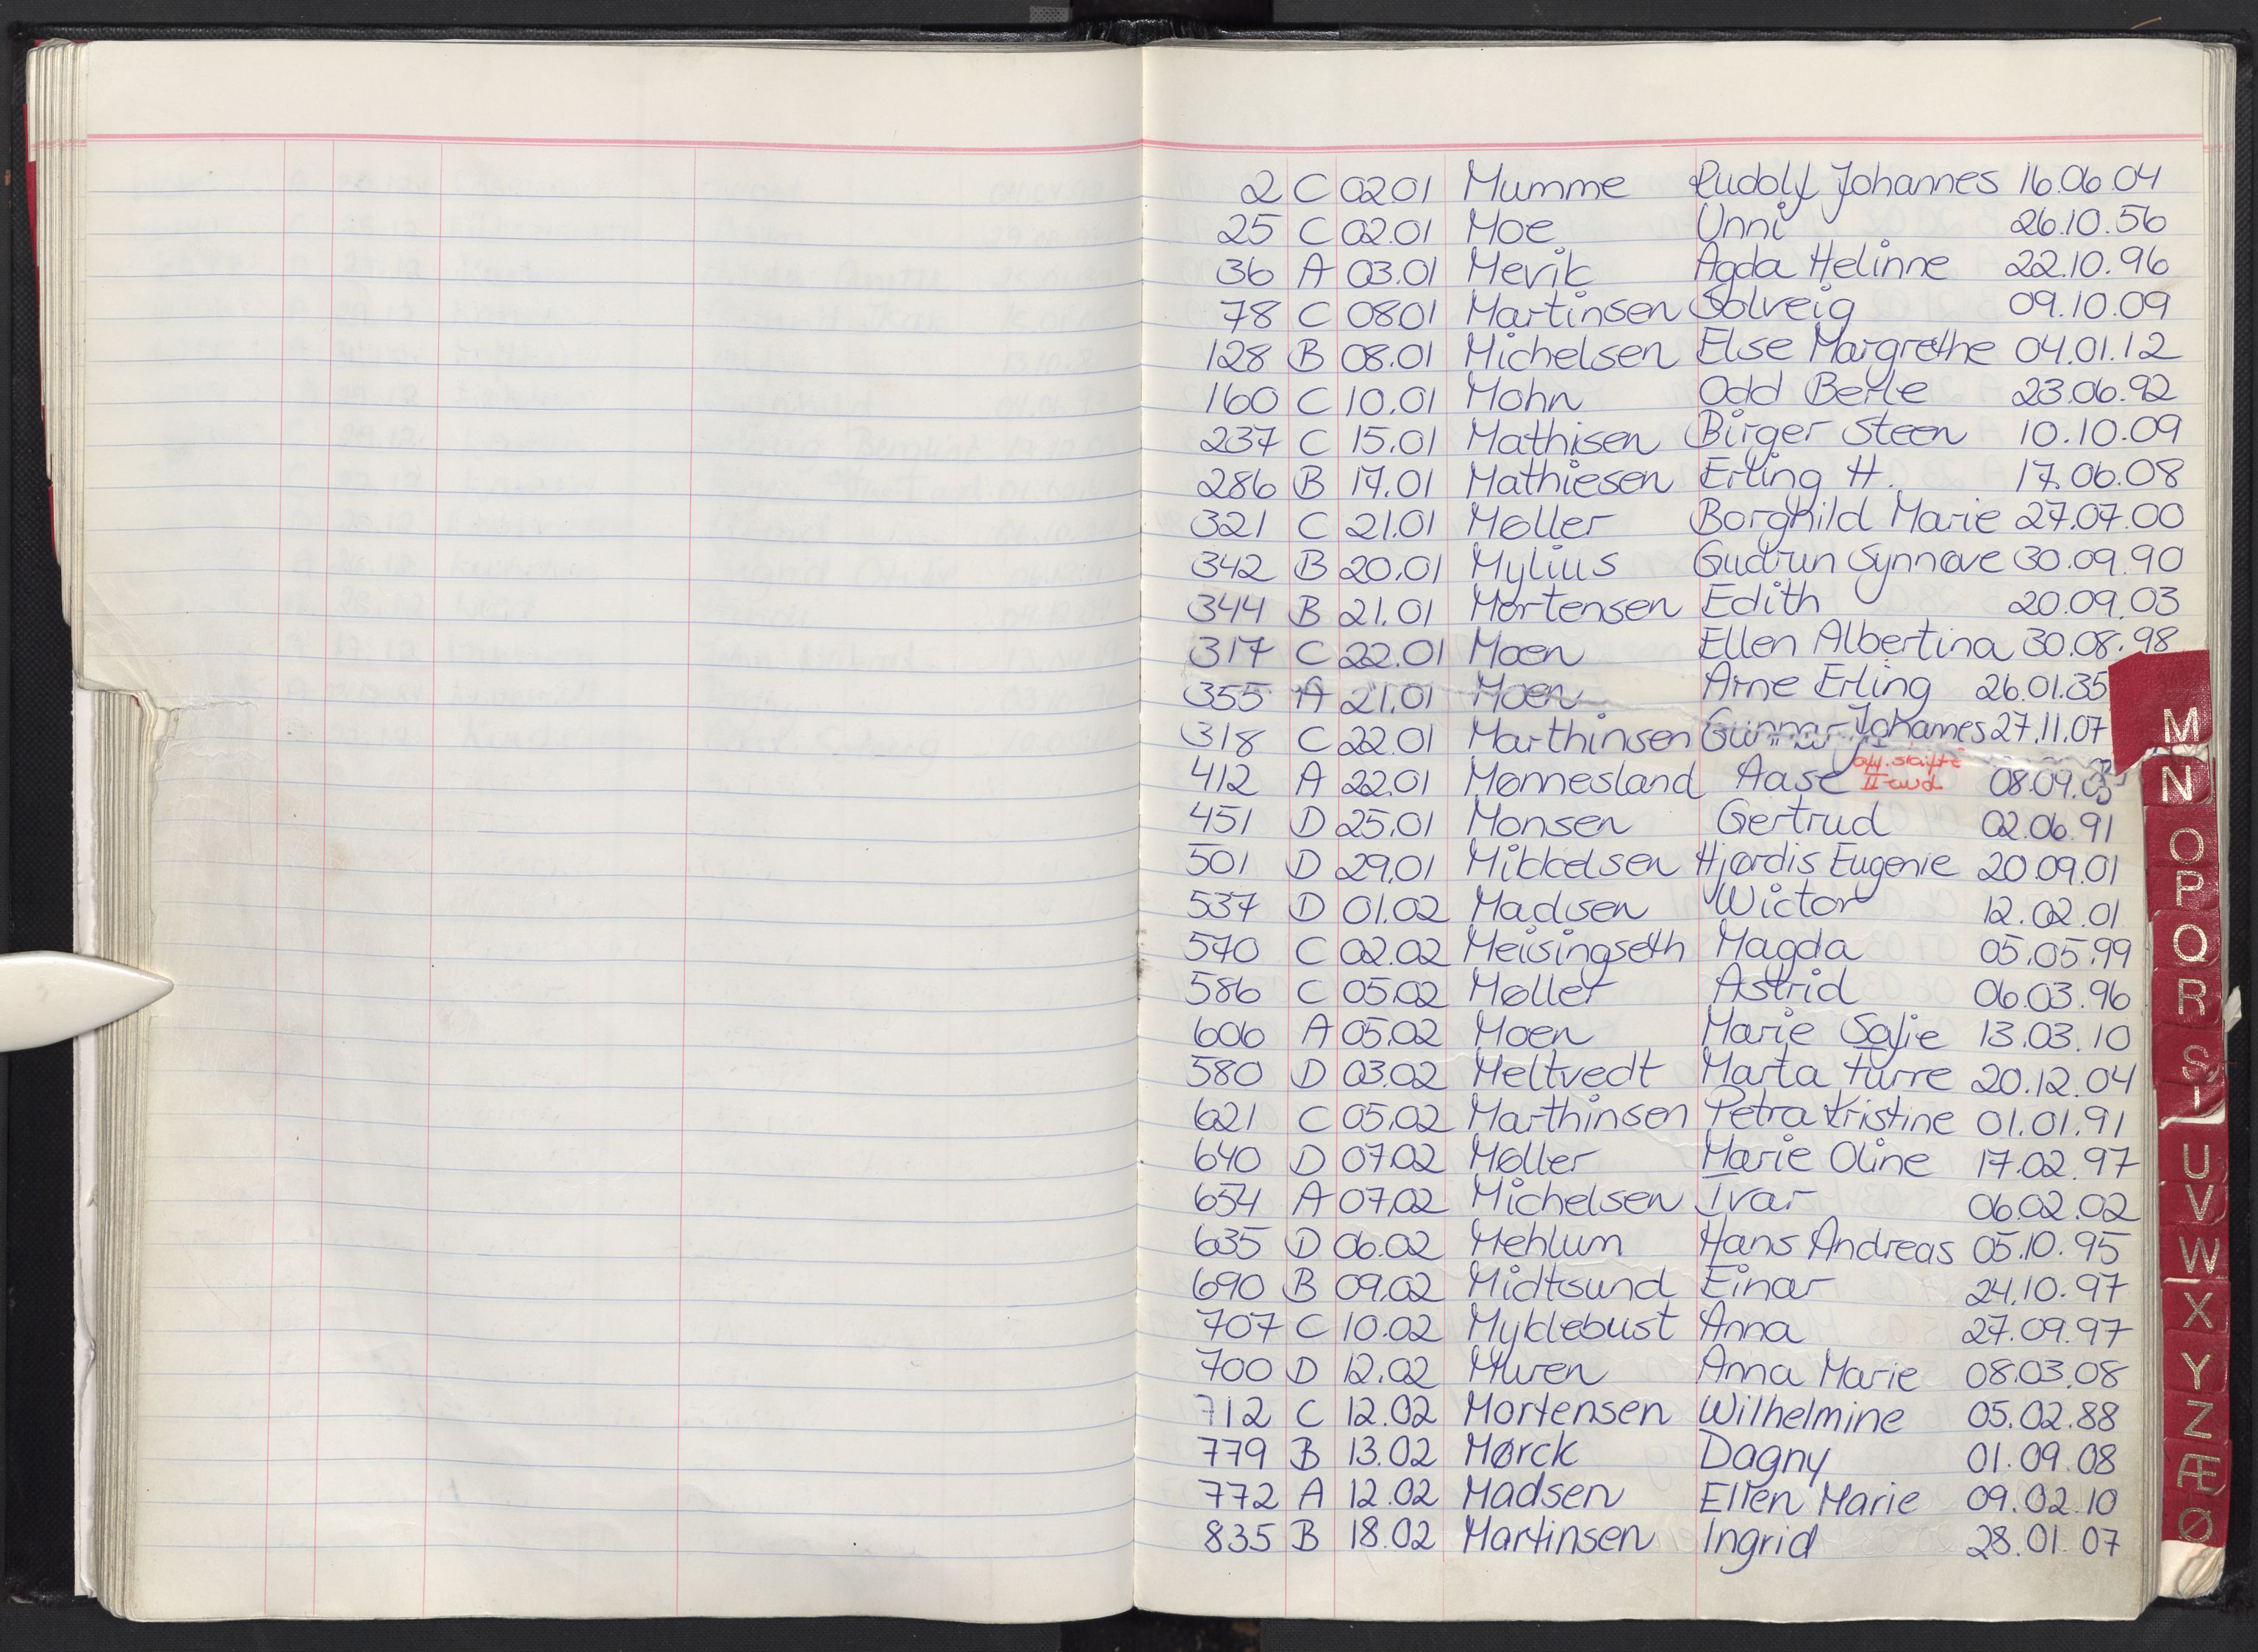 2 C 02.01 Mumme Rudolf Johannes 16.06.04
25 C 02.01 Moe Unni 26.10.56
36 A 03.01 Mevik Agda Helinne 22.10.96
78 C 08.01 Martinsen Solveig 09.10.09
128 B 08.01 Michelsen Else Margrethe 04.01.12
160 C 10.01 Mohn Odd Berle 23.06.92
237 C 15.01 Mathisen Birger Steen 10.10.09
286 B 17.01 Mathiesen Erling H. 17.06.08
321 C 21.01 Møller Borghild Marie 27.07.00
342 B 20.01 Mylius Gudrun Synnøve 30.09.90
344 B 21.01 Mortensen Edith 20.09.03
317 C 22.01 Moen Ellen Albertina 30.08.98
355 A 21.01 Moen Arne Erling 26.01.35
318 C 22.01 Marthinsen Gunnar Johannes 27.11.07
412 A 22.01 Mønnesland Aase off. skifte 08.09.
451 D 25.01 Monsen Gertrud 02.06.91
501 D 29.01 Mikkelsen Hjørdis Eugenie 20.09.01
537 D 01.02 Madsen Wictor 12.02.01
570 C 02.02 Meisingseth Magda 05.05.99
586 C 05.02 Møller Astrid 06.03.96
606 A 05.02 Moen Marie 13.03.10
580 D 03.02 Meltvedt Marta Turre 20.12.04
621 C 05.02 Marthinsen Petra Kristine 01.01.91
640 D 07.02 Møller Marie Oline 17.02.97
654 A 07.02 Michelsen Ivar 06.02.02
635 D 06.02 Mehlum Hans Andreas 05.10.95
690 B 09.02 Midtsund Einar 24.10.97
707 C 10.02 Myklebust Anna 27.09.97
700 D 12.02 Anna Marie 08.03.08
712 C 12.02 Mortensen Wilhelmine 05.02.88
779 B 13.02 Mørck Dagny 01.09.08
772 A 12.02 Madsen Ellen Marie 09.02.10
835 B 18.02 Martinsen Ingrid 28.01.07
M
N
O
P
Q
R
S
T
U
V
W
X
Y
Z
Æ
Ø